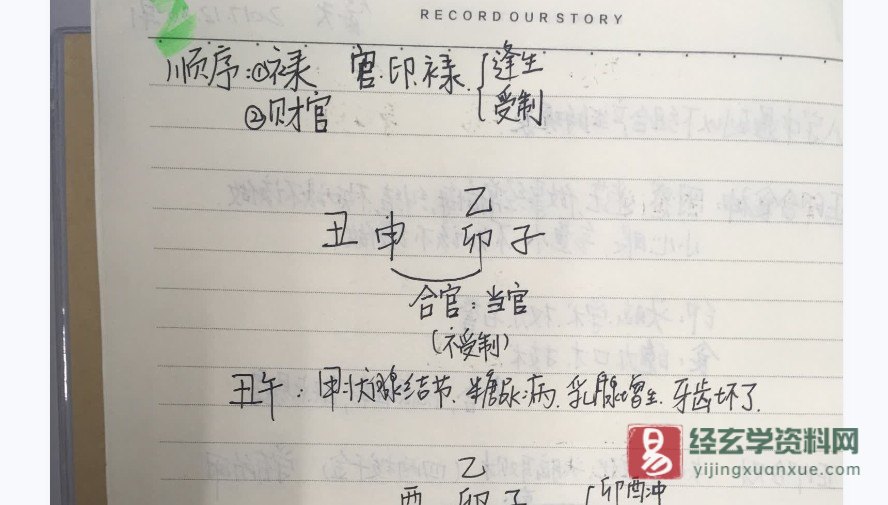 RECORD OUR STORY
顺序:①禄 官.印.禄.{逢生
②财官 受制
乙
丑 申 卯 子
合官:当官
(不受制)
丑午:甲状腺结节.糖尿病.乳腺增生.牙齿坏了.
易 经玄学资料网
yijingxuanxue.com
乙
酉 卯 子 {卯酉冲